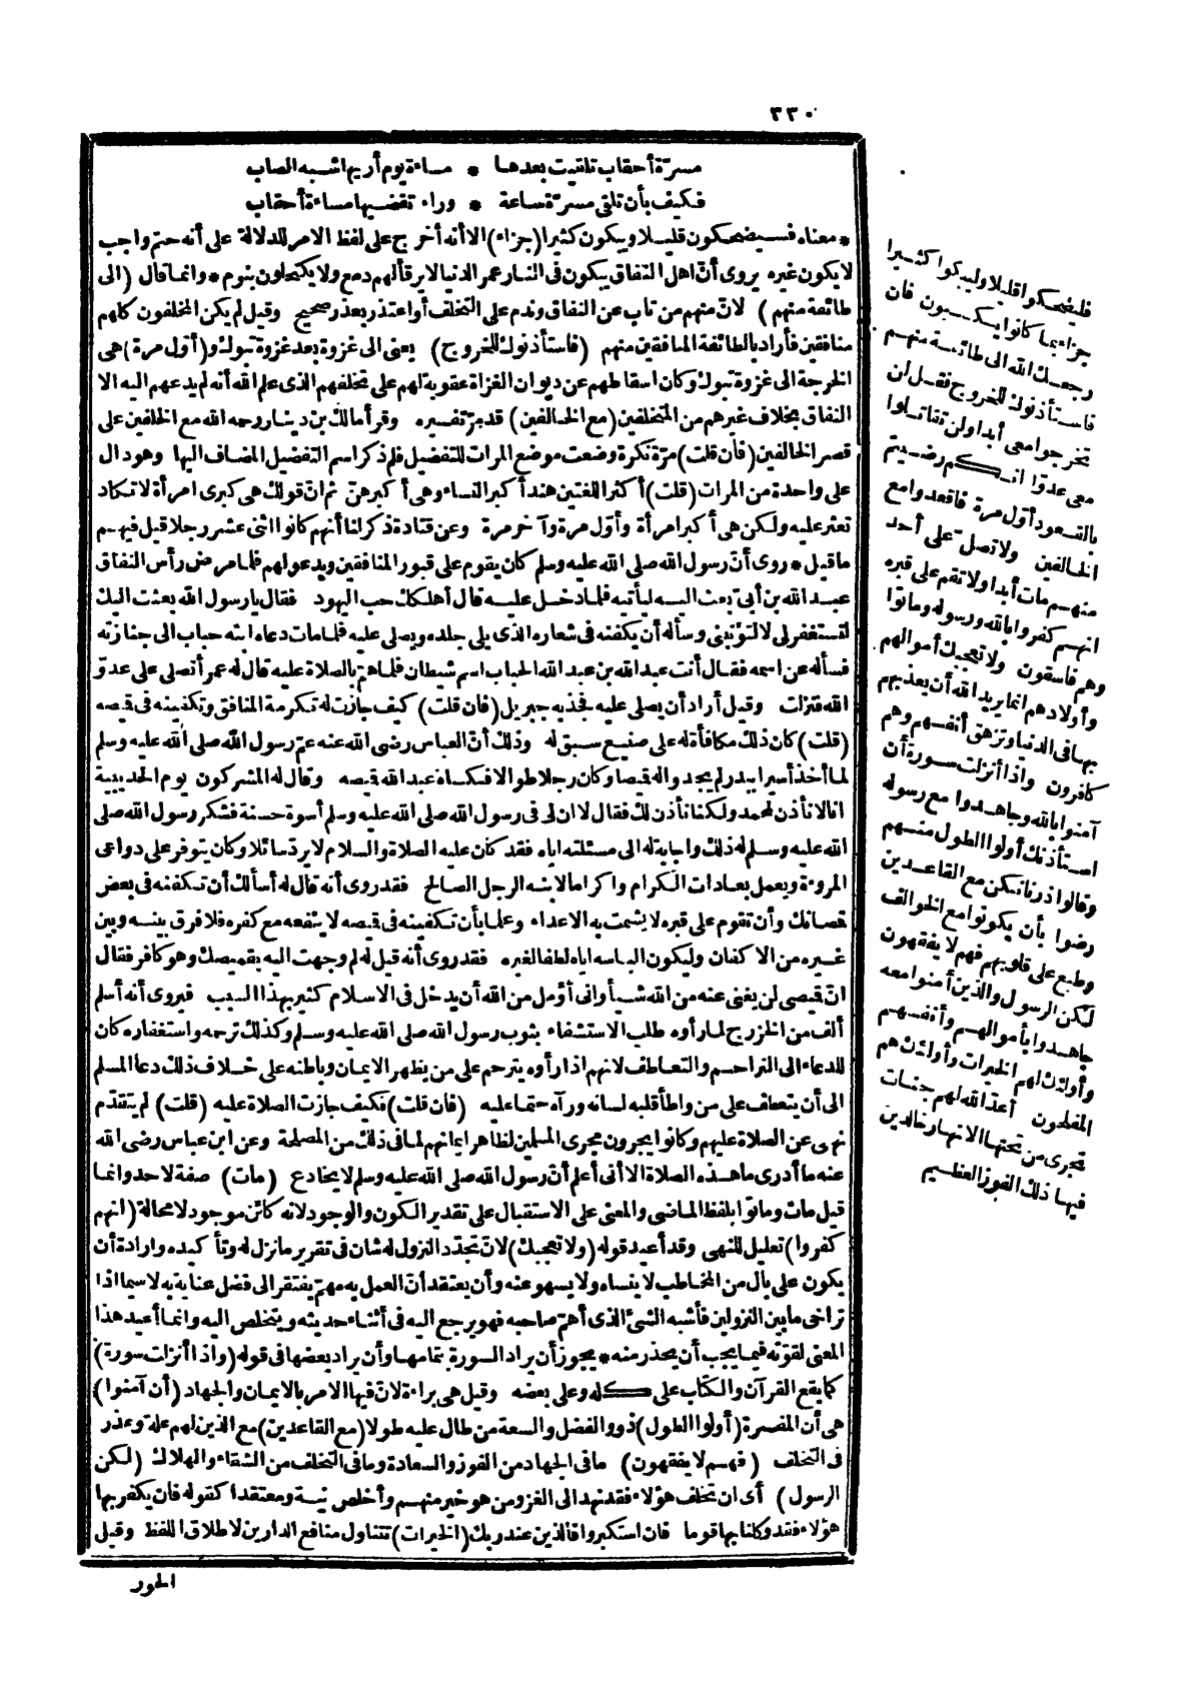 ٣٣٠
مسرة أحقاب تلقيت بعدها * مساءة يوم أريها شبه الصاب
فكيف بأن تلقى مسرة ساعة * وراء تقضيها مساءة أحقاب
* معناه فسيضحكون قليلا ويبكون كثيرا (جزاء) الا أنه أخرج على لفظ الامر للدلالة على أنه حتم واجب
لا يكون غيره يروى أنّ أهل النفاق يبكون فى النار عمر الدنيا لا يرقألهم دمع ولا يكتحلون بنوم * وانما قال (الى
طائفة منهم) لانّ منهم من تاب عن النفاق وندم على التخلف أو اعتذر بعذر صحيح وقيل لم يكن المخلفون كلهم
منافقين فأراد بالطائفة المنافقين منهم (فاستأذنوك للخروج) يعنى الى غزوة بعد غزوة تبوك و(أوّل مرة) هى
الخرجة الى غزوة تبوك وكان اسقاطهم عن ديوان الغزاة عقوبة لهم على تخلفهم الذى علم الله أنه لم يدعهم اليه الا
النفاق بخلاف غيرهم من المتخلفين (مع الخالفين) قد مرّ تفسيره وقرأ مالك بن دينار رحمه الله مع الخلفين على
قصر الخالفين (فان قلت) مرّة نكرة وضعت موضع المرات للتفضيل فلم ذكر اسم التفضيل المضاف اليها وهو دال
على واحدة من المرات (قلت) أكثر اللغتين هند أكبر النساء وهى أكبرهنّ ثم انّ قولك هى كبرى امرأة لا تكاد
تعثر عليه ولكن هى أكبر امرأة وأوّل مرة وآخر مرة وعن قتادة ذكر لنا أنهم كانوا اثنى عشر رجلا قيل فيهم
ما قيل * روى أنّ رسول الله صلى الله عليه وسلم كان يقوم على قبور المنافقين ويدعو لهم فلما مرض رأس النفاق
عبد الله بن أبىّ بعث اليه ليأتيه فلما دخل عليه قال أهلكك حب اليهود فقال يا رسول الله بعثت اليك
لتستغفر لى لا لتؤنبنى وسأله أن يكفنه فى شعاره الذى يلى جلده ويصلى عليه فلما مات دعاه ابنه حباب الى جنازته
فسأله عن اسمه فقال أنت عبد الله بن عبد الله الحباب اسم شيطان فلما همّ بالصلاة عليه قال له عمر أتصلى على عدوّ
الله فنزلت وقيل أراد أن يصلى عليه فجذبه جبريل (فان قلت) كيف جازت له تكرمة المنافق وتكفينه فى قميصه
(قلت) كان ذلك مكافأة له على صنيع سبق له وذلك أنّ العباس رضى الله عنه عمّ رسول الله صلى الله عليه وسلم
لما أخذ أسيرا ببدر لم يجدوا له قميصا وكان رجلا طوالا فكساه عبد الله قميصه وقال له المشركون يوم الحديبية
انا لا نأذن لمحمد ولكنا نأذن لك فقال لا ان لى فى رسول الله صلى الله عليه وسلم أسوة حسنة فشكر رسول الله صلى
الله عليه وسلم له ذلك واجابة له الى مسئلته اياه فقد كان عليه الصلاة والسلام لا يردّ سائلا وكان يتوفر على دواعى
المروءة ويعمل بعادات الكرام واكراما لابنه الرجل الصالح فقد روى أنه قال له أسألك أن تكفنه فى بعض
قمصانك وأن تقوم على قبره لا يشمت به الاعداء وعلما بأن تكفينه فى قميصه لا ينفعه مع كفره فلا فرق بينه وبين
غيره من الاكفان وليكون الباسه اياه لطفا لغيره فقد روى أنه قيل له لم وجهت اليه بقميصك وهو كافر فقال
انّ قميصى لن يغنى عنه من الله شيأ وانى أؤمل من الله أن يدخل فى الاسلام كثير بهذا السبب فيروى أنه أسلم
ألف من الخزرج لما رأوه طلب الاستشفاء بثوب رسول الله صلى الله عليه وسلم وكذلك ترحمه واستغفاره كان
للدعاء الى التراحم والتعاطف لانهم اذا رأوه يترحم على من يظهر الايمان وباطنه على خلاف ذلك دعا المسلم
الى أن يتعطف على من واطأ قلبه لسانه ورآه حتما عليه (فان قلت) فكيف جازت الصلاة عليه (قلت) لم يتقدّم
نهى عن الصلاة عليهم وكانوا يجرون مجرى المسلمين لظاهر ايمانهم لما فى ذلك من المصلحة وعن ابن عباس رضى الله
عنه ما أدرى ما هذه الصلاة الا أنى أعلم أنّ رسول الله صلى الله عليه وسلم لا يخادع (مات) صفة لاحد وانما
قيل مات وماتوا بلفظ الماضى والمعنى على الاستقبال على تقدير الكون والوجود لانه كائن موجود لا محالة (انهم
كفروا) تعليل للنهى وقد أعيد قوله (ولا تعجبك) لانّ تجدّد النزول له شأن فى تقرير ما نزل له وتأكيده وارادة أن
يكون على بال من المخاطب لا ينساه ولا يسهو عنه وأن يعتقد أنّ العمل به مهمّ يفتقر الى فضل عناية به لا سيما اذا
تراخى ما بين النزولين فأشبه الشئ الذى أهمّ صاحبه فهو يرجع اليه فى أثناء حديثه ويتخلص اليه وانما أعيد هذا
المعنى لقوّته فيما يجب أن يحذر منه * يجوز أن يراد السورة بتمامها وأن يراد بعضها فى قوله (واذا أنزلت سورة)
كما يقع القرآن والكتاب على كله وعلى بعضه وقيل هى براءة لانّ فيها الامر بالايمان والجهاد (أن آمنوا)
هى أن المفسرة (أولوا الطول) ذوو الفضل والسعة من طال عليه طولا (مع القاعدين) مع الذين لهم علة وعذر
فى التخلف (فهم لا يفقهون) ما فى الجهاد من الفوز والسعادة وما فى التخلف من الشقاء والهلاك (لكن
الرسول) أى ان تخلف هؤلاء فقد نهد الى الغزو من هو خير منهم وأخلص نية ومعتقدا كقوله فان يكفر بها
هؤلاء فقد وكلنا بها قوما فان استكبروا فالذين عند ربك (الخيرات) تتناول منافع الدارين لاطلاق اللفظ وقيل
الحور
فليضحكوا قليلا وليبكوا كثيرا
جزاء بما كانوا يكسبون فان
رجعك الله الى طائفة منهم
فاستأذنوك للخروج فقل لن
تخرجوا معى أبدا ولن تقاتلوا
معى عدوّا انكم رضيتم
بالقعود أوّل مرة فاقعدوا مع
الخالفين ولا تصلّ على أحد
منهم مات أبدا ولا تقم على قبره
انهم كفروا بالله ورسوله وماتوا
وهم فاسقون ولا تعجبك أموالهم
وأولادهم انما يريد الله أن يعذبهم
بها فى الدنيا وتزهق أنفسهم وهم
كافرون واذا أنزلت سورة أن
آمنوا بالله وجاهدوا مع رسوله
استأذنك أولوا الطول منهم
وقالوا ذرنا نكن مع القاعدين
رضوا بأن يكونوا مع الخوالف
وطبع على قلوبهم فهم لا يفقهون
لكن الرسول والذين آمنوا معه
جاهدوا بأموالهم وأنفسهم
وأولئك لهم الخيرات وأولئك هم
المفلحون أعدّ الله لهم جنات
تجرى من تحتها الانهار خالدين
فيها ذلك الفوز العظيم